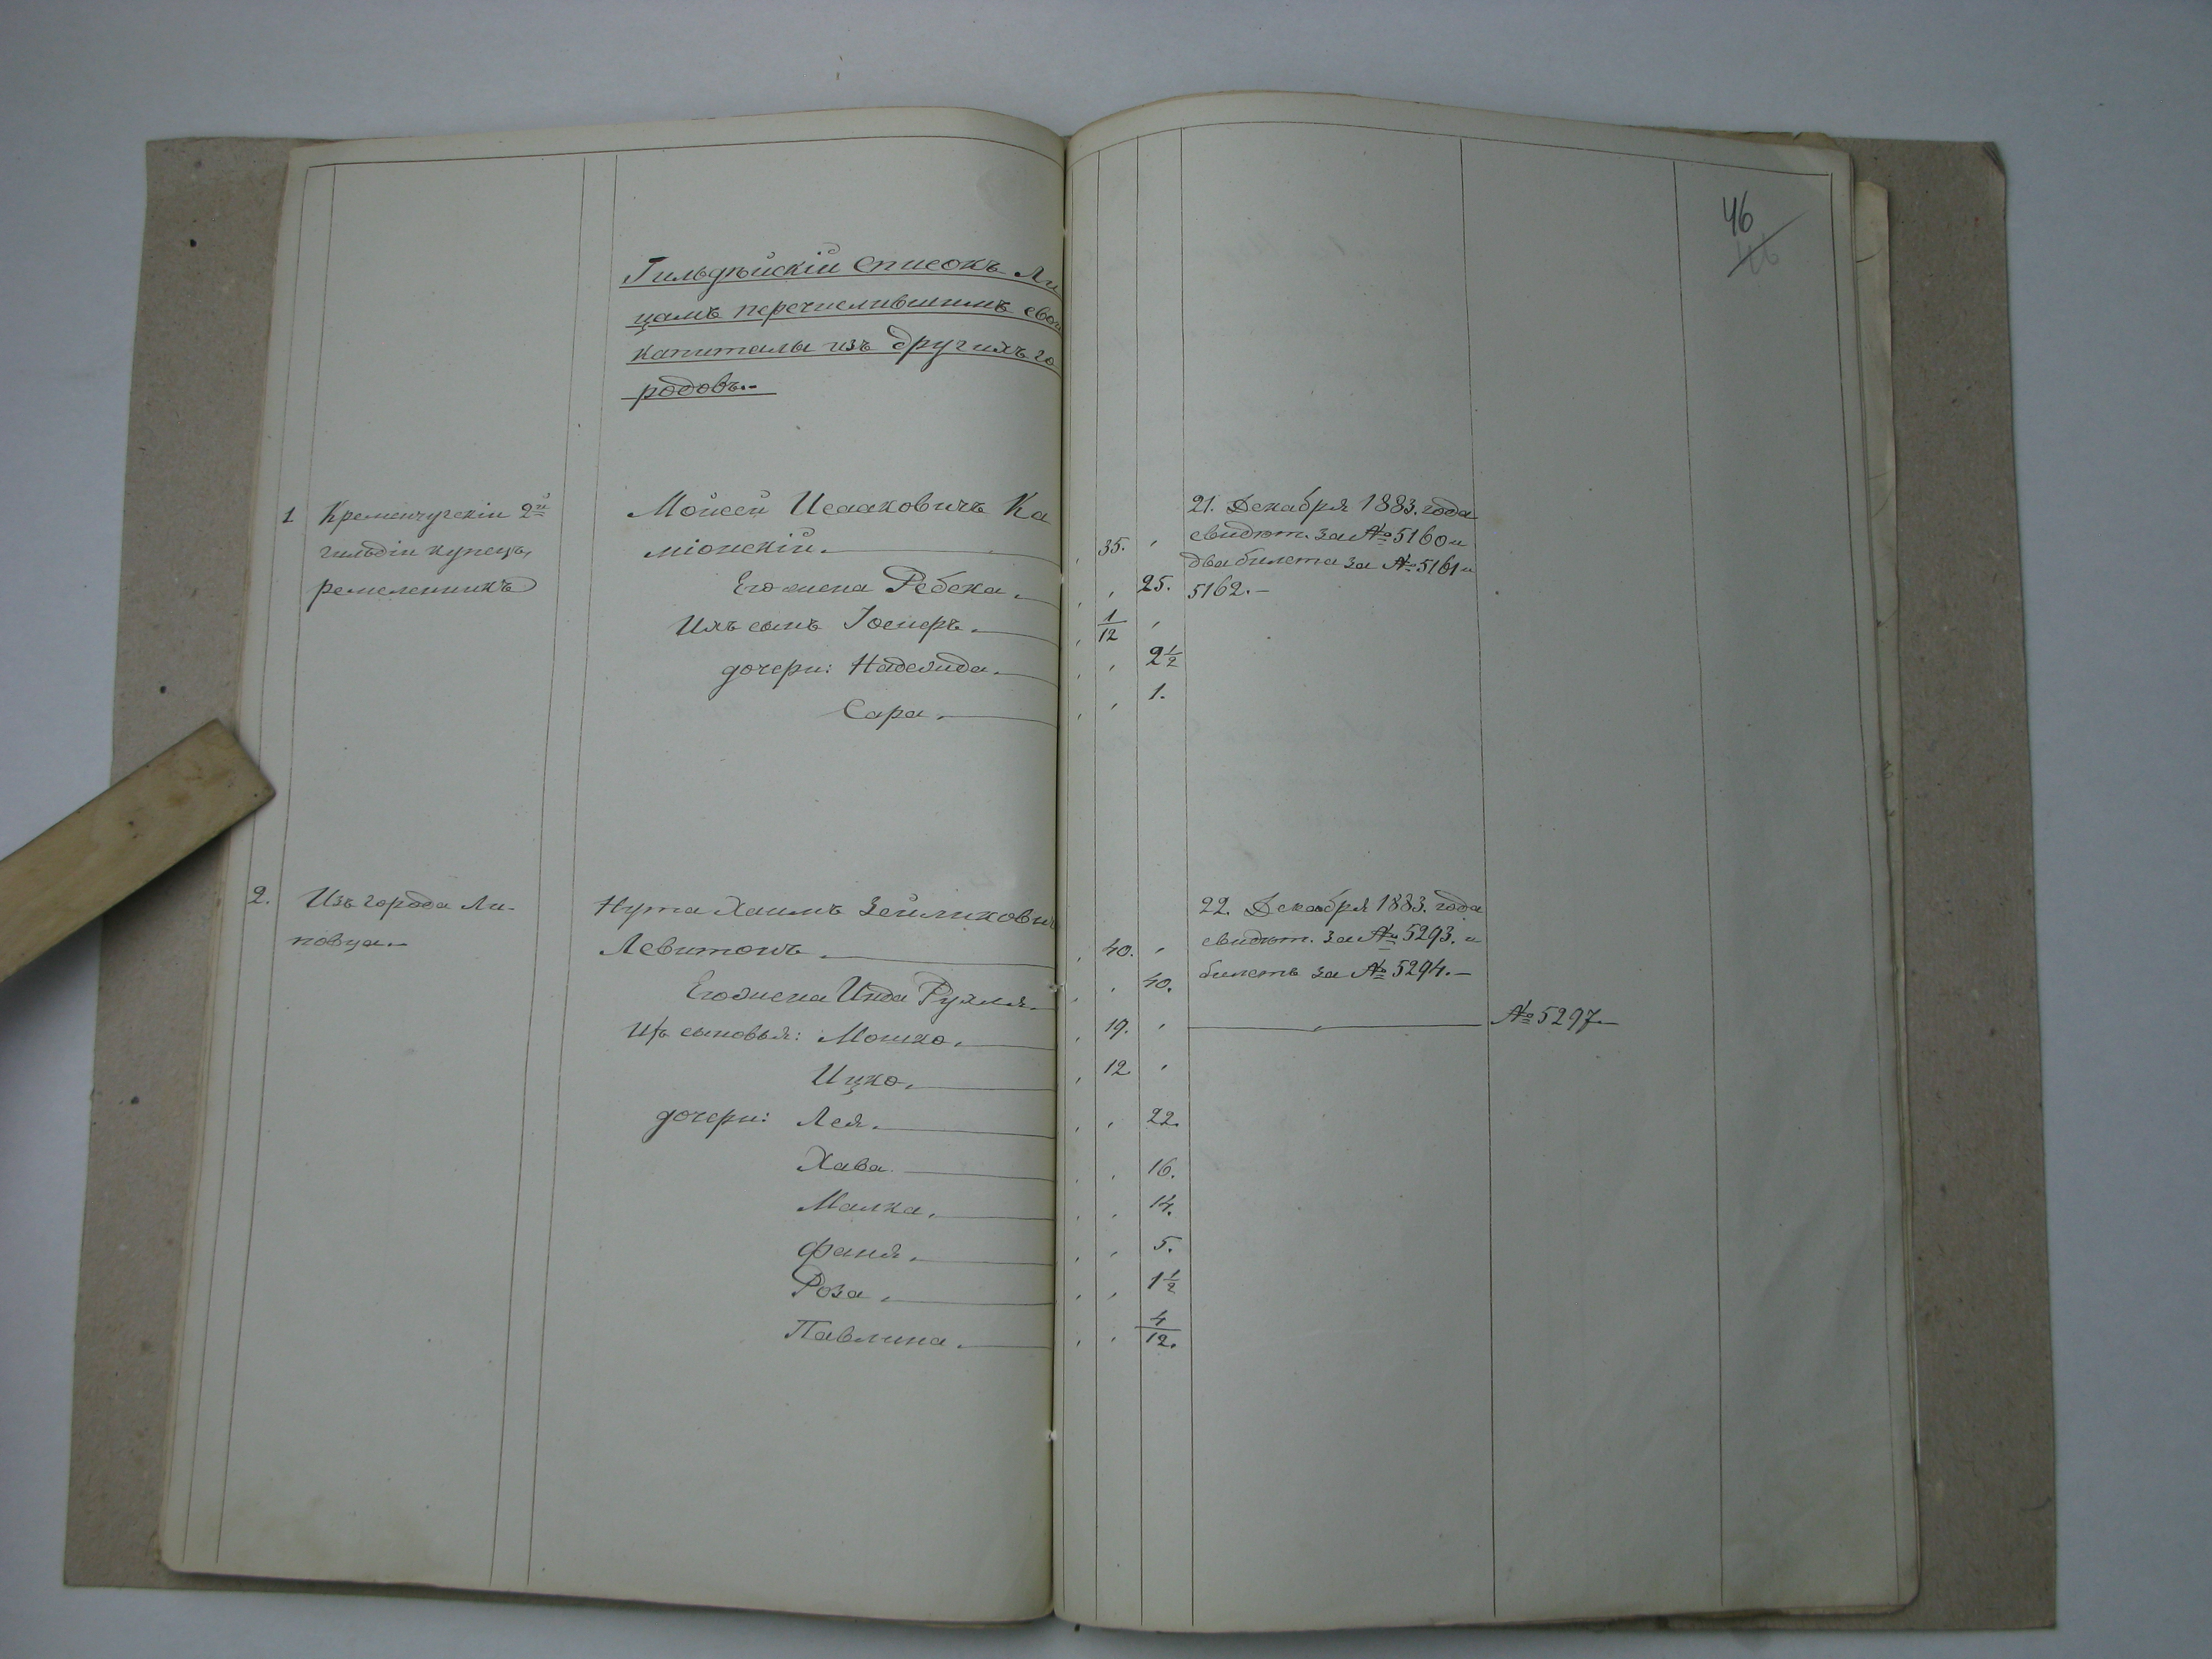 46
46
Гильдѣйскій списокъ Ли
цамъ перечислившимъ свои
капиталы изъ другихъ го
родовъ.-
1 Кременчугскій 2й
гильдіи купецъ,
ремесленникъ
Мойсей Исааковичъ Ка
міонскій. 35. ,
Его жена Ребека. , 25.
Ихъ сынъ Іосифъ. 1/12 ,
дочери: Надежда. , 2 1/2
Сара. , 1.
21. Декабря 1883. года
свидѣт. за № 5160 и
два билета за № 5161 и
5162.-
2. Изъ города Ли-
повца.-
Нута Хаимъ Зейликовичъ
Левитонъ. 40. ,
Его жена Инда Рухля. , 40.
Ихъ сыновья: Мошко. 19. ,
Ицко. 12. ,
дочери: Лея. , 22.
Хава. , 16.
Малка. , 14.
Фаня. , 5.
Роза. , 1 1/2
Павлина. , 4/12.
22. Декабря 1883. года
свидѣт. за № 5293. и
билетъ за № 5294.-
№ 5297.-